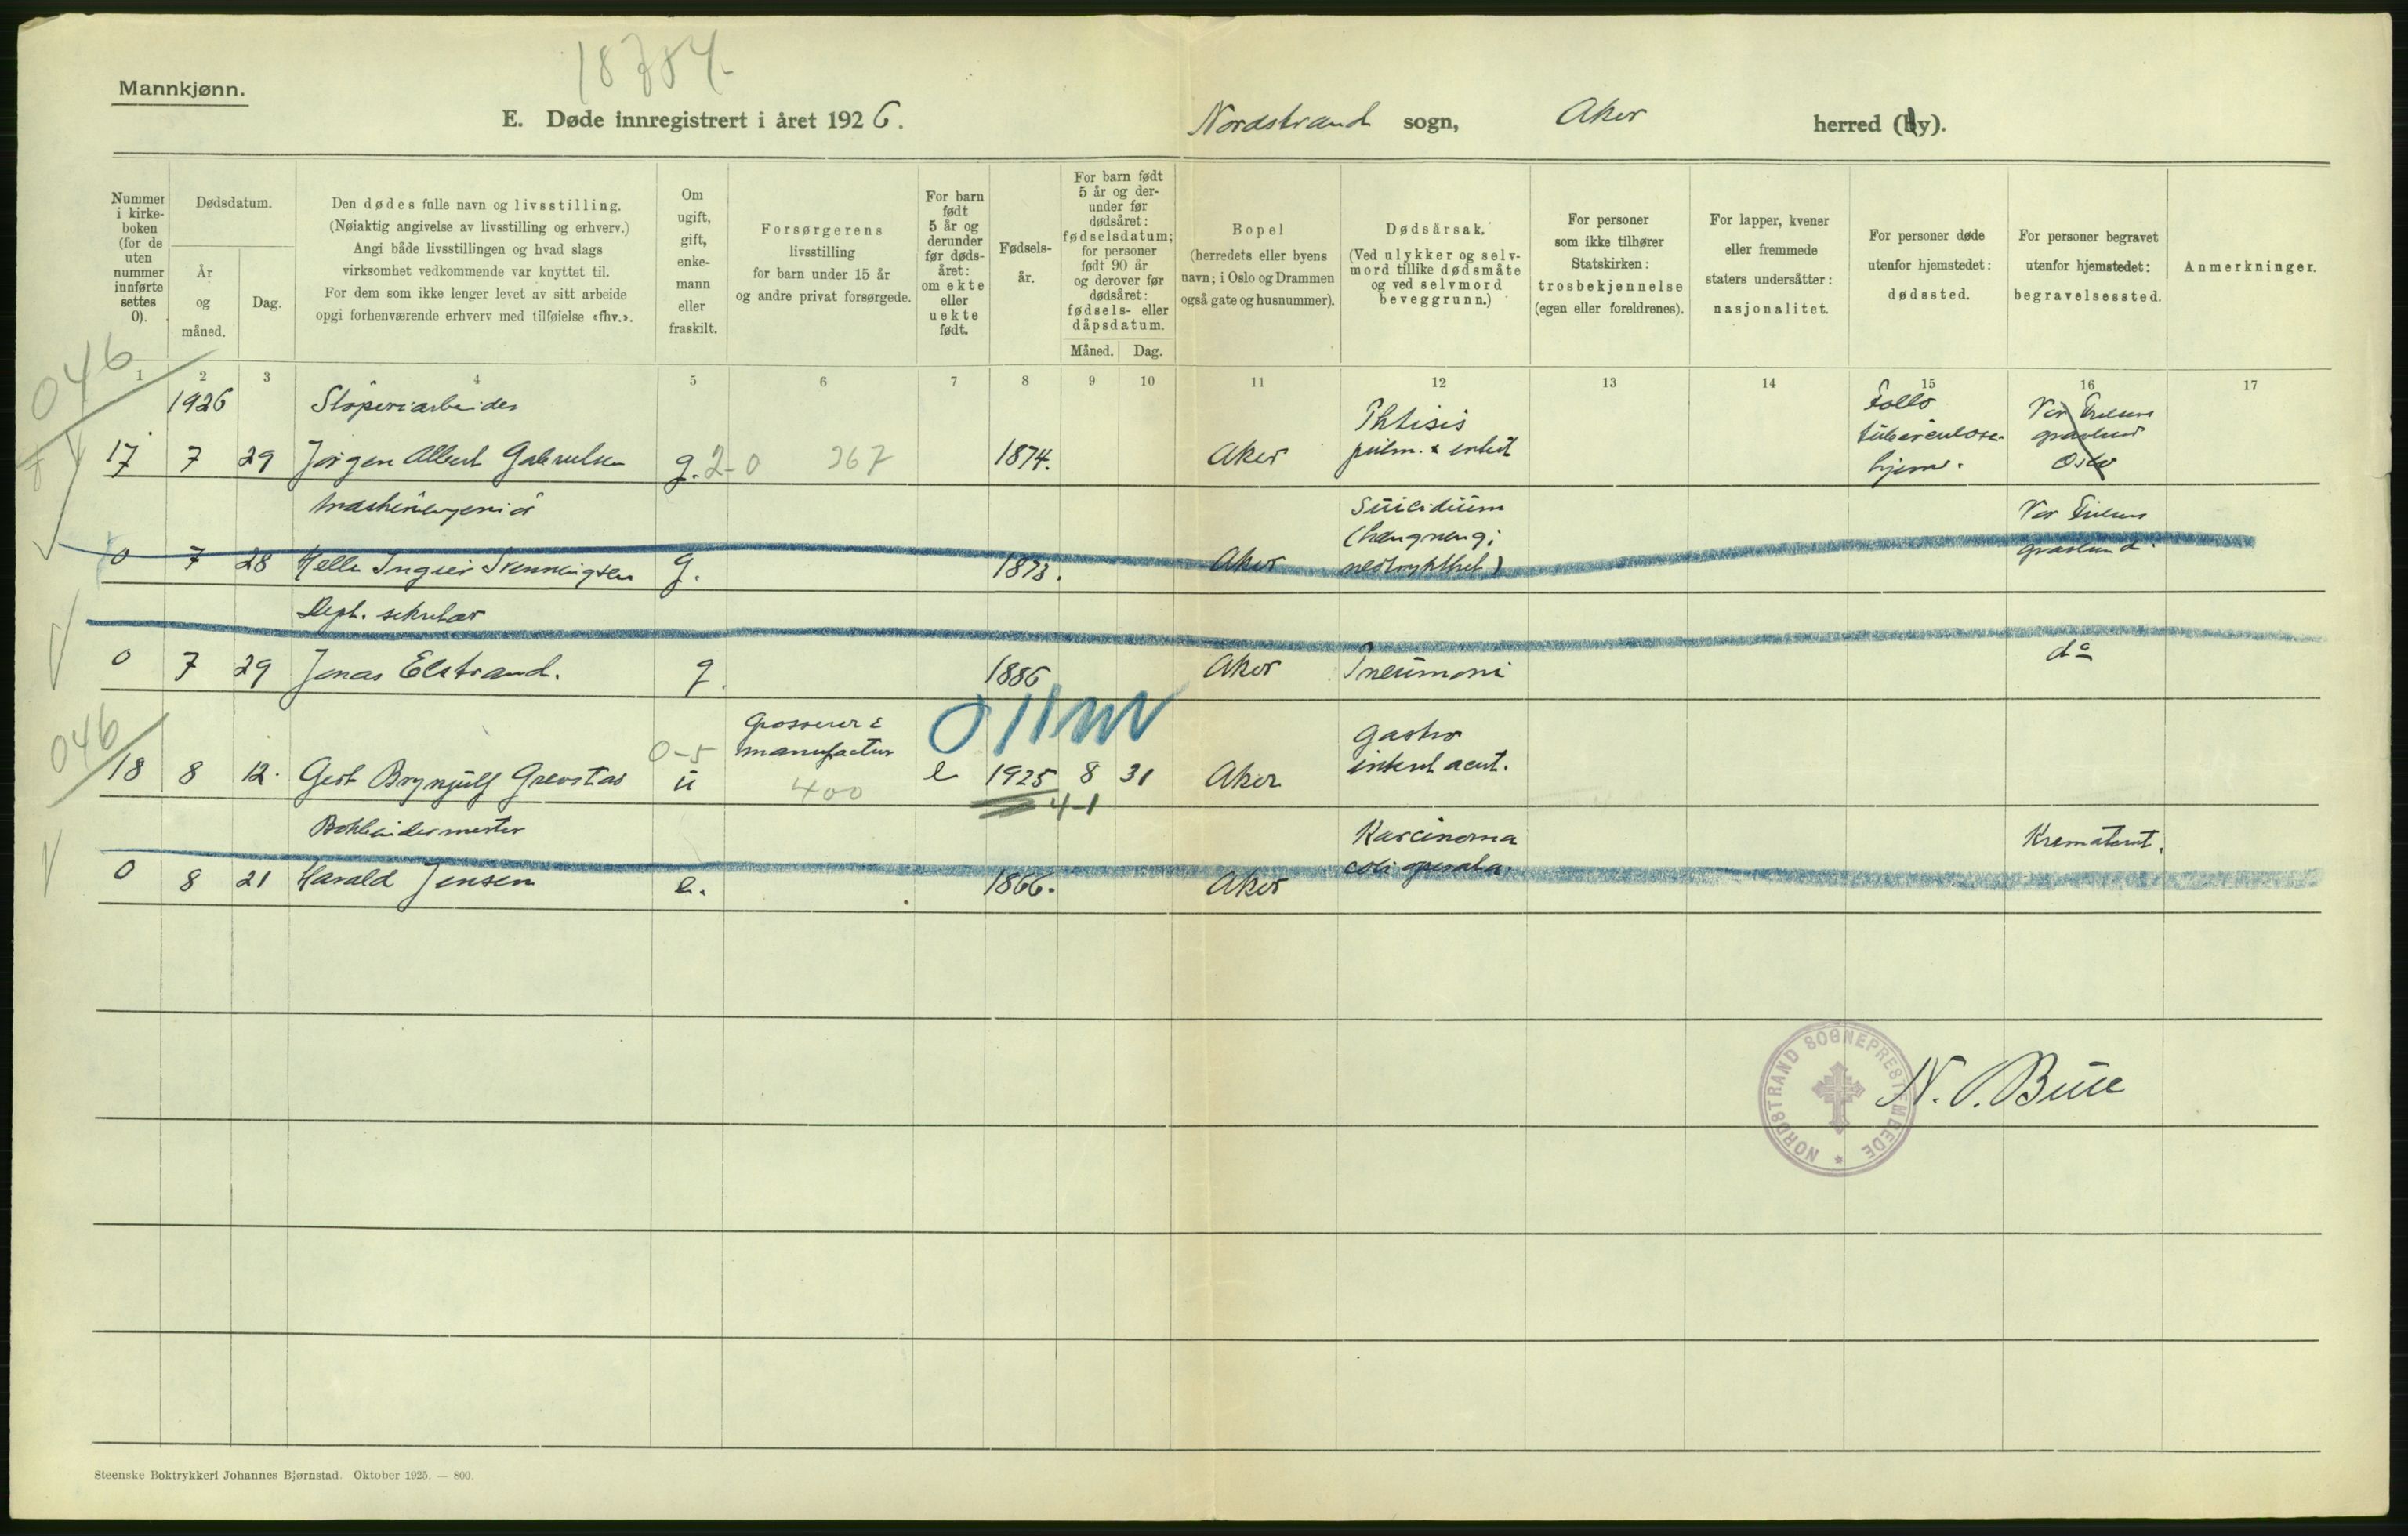 18784.
Mannkjønn.
E. Døde innregistrert i året 1926.
Nordstrand sogn, Aker herred (by).
Nummer i kirke-boken (for de uten nummer innførte settes 0).
Dødsdatum.
År og måned.
Dag.
Den dødes fulle navn og livsstilling.
(Nøiaktig angivelse av livsstilling og erhverv.)
Angi både livsstillingen og hvad slags
virksomhet vedkommende var knyttet til.
For dem som ikke lenger levet av sitt arbeide
opgi forhenværende erhverv med tilføielse «fhv.».
Om ugift, gift, enke-mann eller fraskilt.
Forsørgerens
livsstilling
for barn under 15 år
og andre privat forsørgede.
For barn født 5 år og derunder før døds-året: om ekte eller uekte født.
Fødsels-år.
For barn født 5 år og der-under før dødsåret: fødselsdatum; for personer født 90 år og derover før dødsåret: fødsels- eller dåpsdatum.
Måned. Dag.
Bopel
(herredets eller byens
navn; i Oslo og Drammen
også gate og husnummer).
Dødsårsak.
(Ved ulykker og selv-
mord tillike dødsmåte
og ved selvmord
beveggrunn.)
For personer
som ikke tilhører
Statskirken:
trosbekjennelse
(egen eller foreldrenes).
For lapper, kvener
eller fremmede
staters undersåtter:
nasjonalitet.
For personer døde
utenfor hjemstedet:
dødssted.
For personer begravet
utenfor hjemstedet:
begravelsessted.
Anmerkninger.
1 2 3 4 5 6 7 8 9 10 11 12 13 14 15 16 17
046
1926 Støperiarbeider Phtisis Follo Vor Frelsers
17 7 29 Jørgen Albert Gabrielsen g. 2-0 267 1874. Aker pulm. & entest tuberculose-hjem. gravlund Oslo
Maskiningeniør Suicidium Vor Frelsers
(hængning i
0 7 28 Helle Ingier Svenningsen g. 1873. Aker nedtrykthet) gravlund
Dept. sekretær
0 7 29 Jonas Elstrand. g. 1886 Aker Pneumoni do
046
Grosserer & 011 Gastro
0-5 manufactur
18 8 12. Gert Brynjulf Grevstad u 400 e 1925 8 31 Aker intest acut.
4-1
Bokbindermester Karcinoma Krematoriet.
0 8 21 Harald Jensen e. 1866. Aker coli operata.
NORDSTRAND SOGNEPRESTEMBEDE
N. O. Bue
Steenske Boktrykkeri Johannes Bjørnstad. Oktober 1925. — 800.